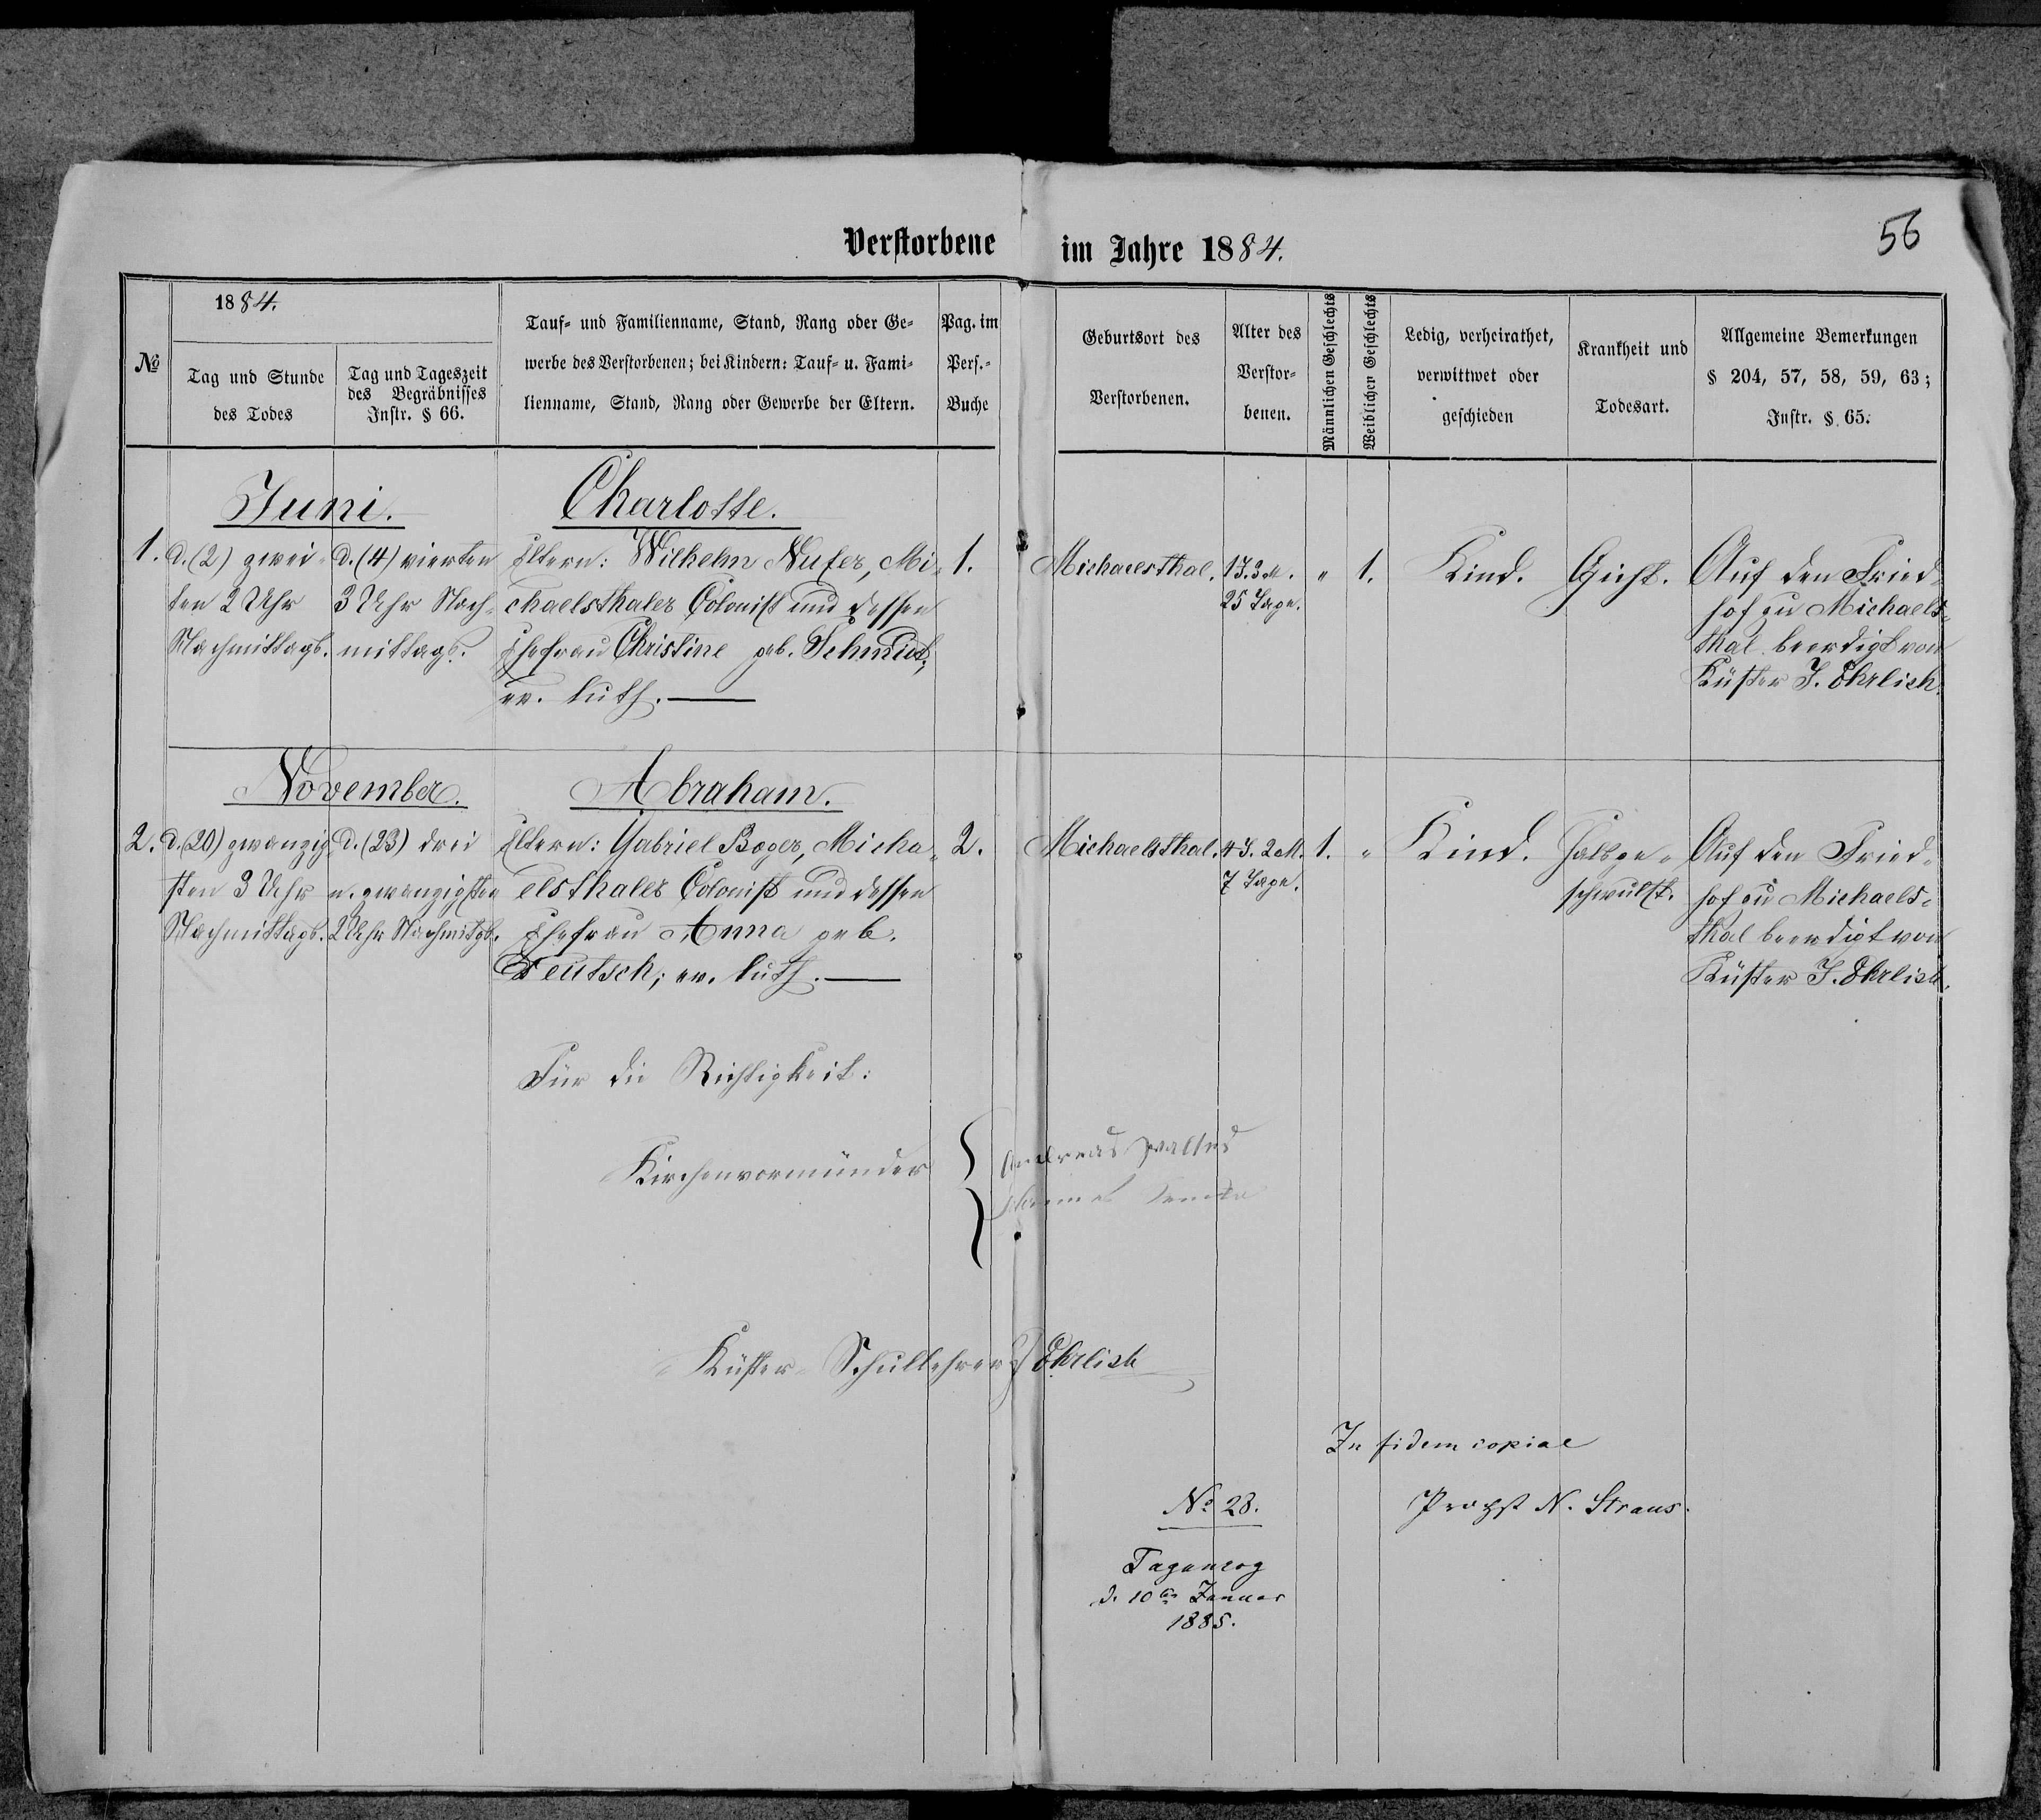 Verstorbene im Jahre 1884.
56
1884.
No
Tag und Stunde
des Todes
Tag und Tageszeit
des Begräbnisses
Instr. § 66.
Tauf- und Familienname, Stand, Rang oder Ge-
werbe des Verstorbenen; bei Kindern: Tauf- u. Fami-
lienname, Stand, Rang oder Gewerbe der Eltern.
Pag. im
Pers.-
Buche
Geburtsort des
Verstorbenen.
Alter des
Verstor-
benen.
Männlichen Geschlechts
Weiblichen Geschlechts
Ledig, verheirathet,
verwittwet oder
geschieden
Krankheit und
Todesart.
Allgemeine Bemerkungen
§ 204, 57, 58, 59, 63;
Instr. § 65.
Juni.
Charlotte.
1.
d. (2) zwei-
ten 2 Uhr
Nachmittags.
d. (4) vierten
3 Uhr Nach-
mittags.
Eltern: Wilhelm Nufer, Mi-
chaelsthaler Colonist und dessen
Ehefrau Christine geb. Schmidt,
ev. luth.
1.
Michaelsthal.
1 J. 3 M.
25 Tage.
"
1.
Kind.
Gicht.
Auf den Fried-
hof zu Michaels-
thal beerdigt von
Küster J. Ehrlich.
November.
Abraham.
2.
d. (20) zwanzig-
sten 3 Uhr
Nachmittags.
d. (23) drei
u. zwanzigsten
2 Uhr Nachmitgs.
Eltern: Gabriel Boger, Micha-
elsthaler Colonist und dessen
Ehefrau Anna geb.
Deutsch; ev. luth.
2.
Michaelsthal.
4 J. 2 M.
7 Tage.
1.
"
Kind.
Halsge-
schwulst.
Auf den Fried-
hof zu Michaels-
thal beerdigt von
Küster J. Ehrlich.
Für die Richtigkeit:
Kirchenvormünder
Andreas
Küster-Schullehrer J Ehrlich
In fidem copiae
No 28.
Probst N. Straus.
Taganrog
d. 10ten Januar
1885.